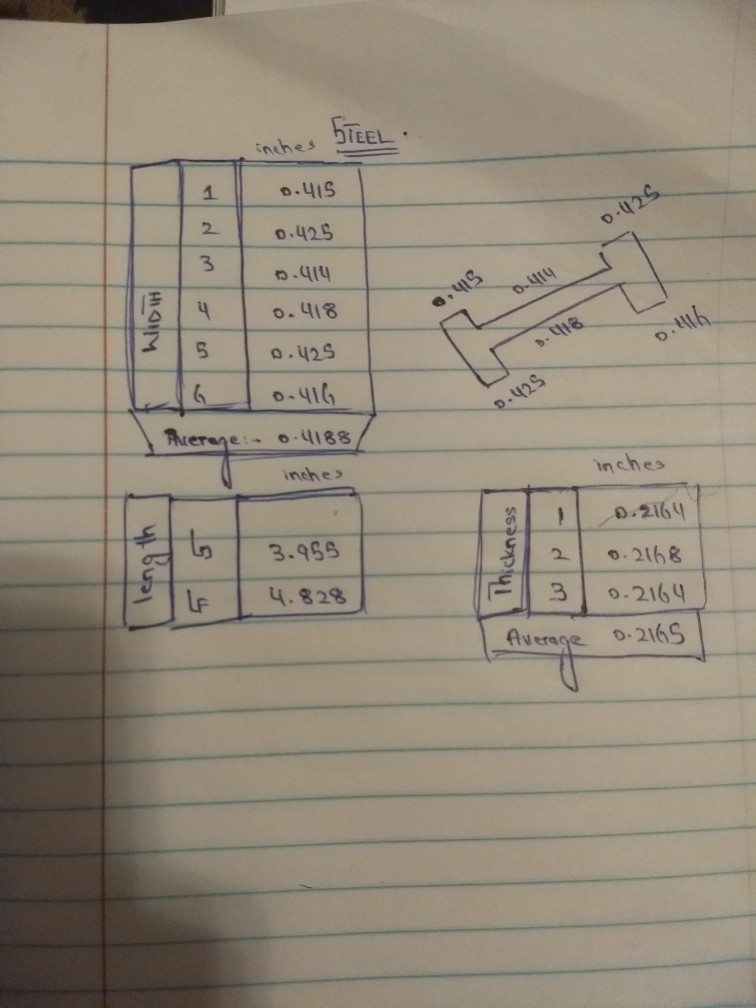 inches STEEL.
WIDTH
1 0.415
2 0.425
3 0.414
4 0.418
5 0.425
6 0.416
Average:- 0.4188
0.425
0.415
0.414
0.418
0.416
0.425
inches
length
3.955
LF 4.828
inches
Thickness
1 0.2164
2 0.2168
3 0.2164
Average 0.2165